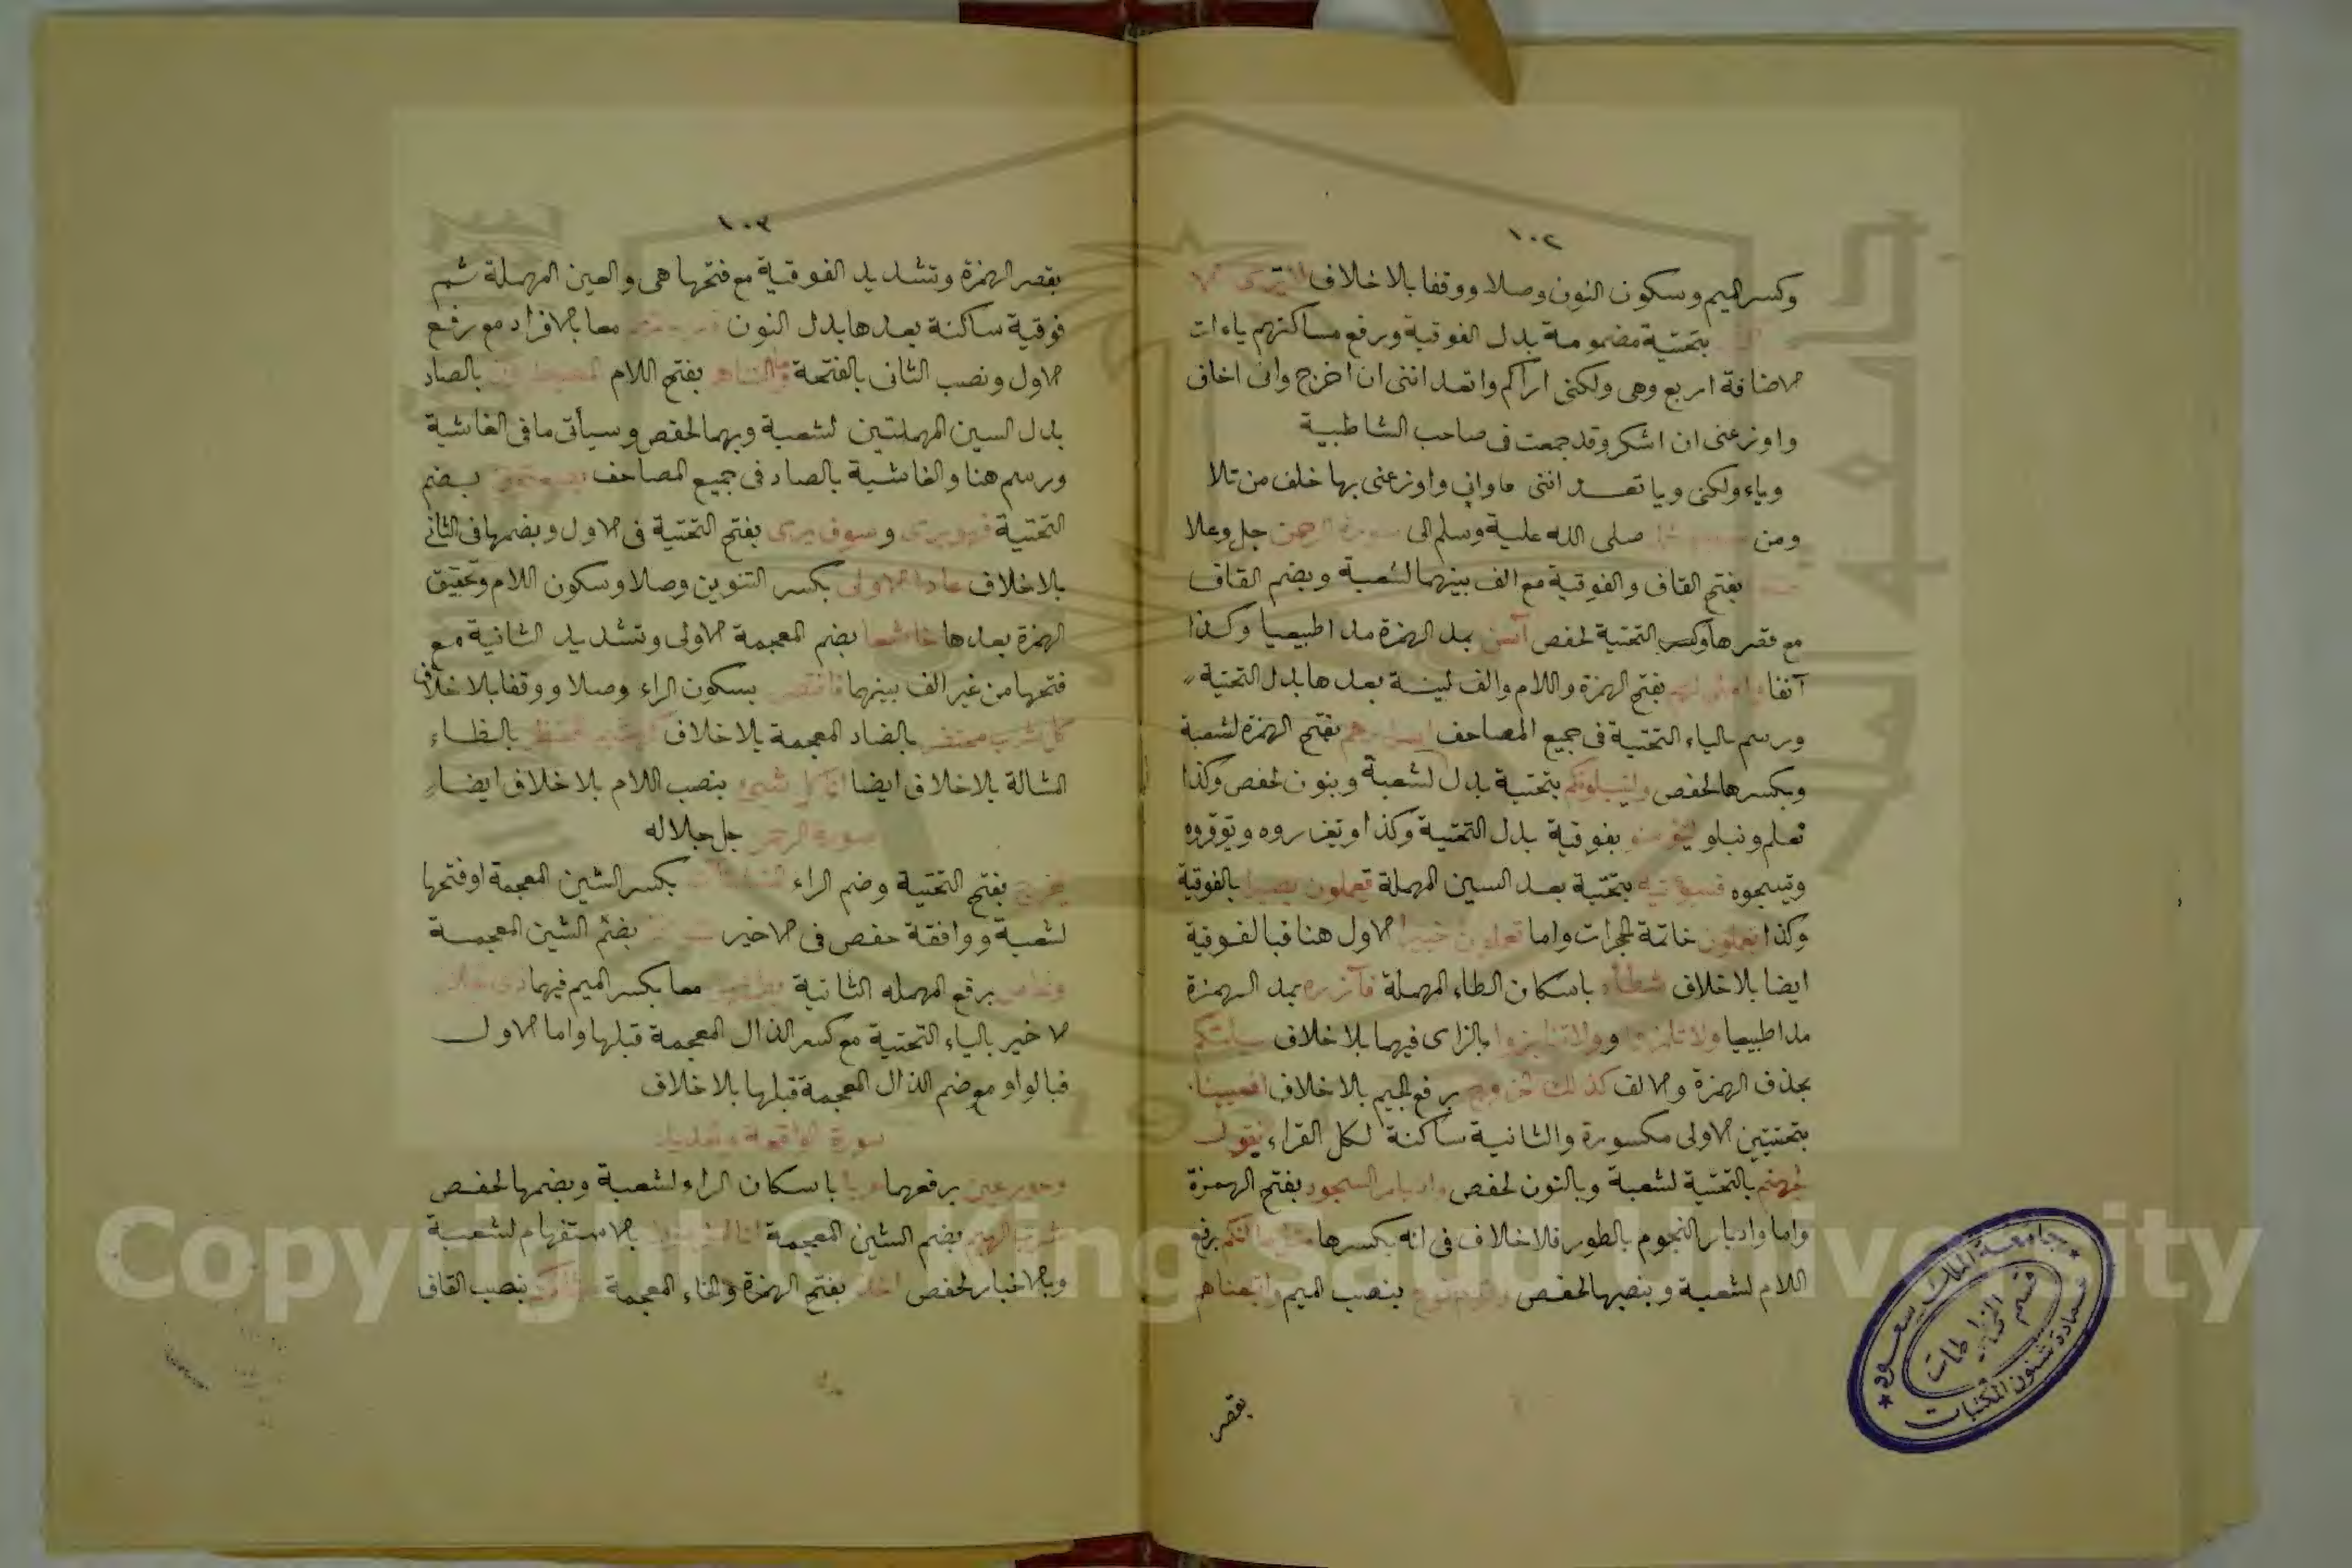 ١٠٢
وكسر الميم وسكون النون وصلا ووقفا بالاخلاف لا يرى
بتحتية مضمومة بدل الفوقية ورفع مساكنهم ياءات
الاضافة اربع وهى ولكنى اراكم واتعداننى ان اخرج وانى اخاف
واوزعنى ان اشكر وقد جمعت فى صاحب الشاطبية
وياء ولكنى ويا تعــد اننى مع وانى واوزعنى بها خلف من تلا
ومن صلى الله علية وسلم الى سورة الرحمن جل وعلا
بفتح القاف والفوقية مع الف بينهما لشعبة وبضم القاف
مع قصرها وكسر التحتية لحفص آسن بمد الهمزة مدا طبيعيا وكذا
آنفا واملى لهم بفتح الهمزة واللام والف لينة بعدها بدل التحتية
ورسم بالياء التحتية فى جميع المصاحف اسرارهم بفتح الهمزة لشعبة
وبكسرها لحفص ولنبلونكم بتحتية بدل لشعبة وبنون لحفص وكذا
نعلم ونبلو لتؤمنو بفوقية بدل التحتية وكذا وتعزروه وتوقروه
وتسبحوه فسيؤتيه بتحتية بعد السين المهملة تعملون بصيرا بالفوقية
وكذا تعملون خاتمة الحجرات واما تعملون خبيرا الاول هنا فبالفوقية
ايضا بلاخلاف شطأه باسكان الطاء المهملة فآزره بمد الهمزة
مدا طبيعيا ولا تلمزوا وولا تنابزوا بالزاى فيهما بلا خلاف يلتكم
بحذف الهمزة والالف كذلك الخروج برفع الجيم بالاخلاف افعيينا
بتحتيتين الاولى مكسورة والثانية ساكنة لكل القراء نقول
لجهنم بالتحتية لشعبة وبالنون لحفص وادبار السجود بفتح الهمزة
واما وادبار النجوم بالطور فلاخلاف فى انه بكسرها مثل ما انكم برفع
اللام لشعبة وبنصبها لحفص وقوم نوح بنصب الميم واتبعناهم
بقصر
١٠٣
بقصر الهمزة وتشديد الفوقية مع فتحها هى والعين المهملة ثم
فوقية ساكنة بعدها بدل النون معا بالافراد مع رفع
الاول ونصب الثانى بالفتحة وما التناهم بفتح اللام المصيطرون بالصاد
بدل السين المهملتين لشعبة وبهما لحفص وسيأتى ما فى الغاشية
ورسم هنا والغاشية بالصاد فى جميع المصاحف يصعقون بضم
التحتية فهو يرى وسوف يرى بفتح التحتية فى الاول وبضمها فى الثانى
بالاخلاف عادا الاولى بكسر التنوين وصلا وسكون اللام وتحقيق
الهمزة بعدها خاشعا بضم المعجمة الاولى وتشديد الثانية مع
فتحها من غير الف بينهما فانتصر بسكون الراء وصلا ووقفا بالاخلاف
كل شرب محتضر بالضاد المعجمة بلاخلاف كهشيم المحتظر بالظاء
المشالة بلاخلاف ايضا انا كل شيئ بنصب اللام بلاخلاف ايضا
سورة الرحمن جل جلاله
يخرج بفتح التحتية وضم الراء المنشآت بكسر الشين المعجمة او فتحها
لشعبة ووافقة حفص فى الاخير شواظ بضم الشين المعجمة
ونحاس برفع المهمله الثانية يطمثهن معا بكسر الميم فيهما ذى جلال
الاخير بالياء التحتية مع كسر الذال المعجمة قبلها واما الاول
فبالواو مع ضم الذال المعجمة قبلها بلاخلاف
سورة الواقعة والحديد
وحور عين برفعهما عربا باسكان الراء لشعبة وبضمها لحفص
شرب الهيم بضم الشين المعجمة ائنا لمغرمون بالاستفهام لشعبة
وبالاخبار لحفص اخذ بفتح الهمزة والخاء المعجمة ميثاقكم بنصب القاف
جامعة الملك سعود
عمادة شئون المكتبات
قسم المخطوطات
Copyright © King Saud University